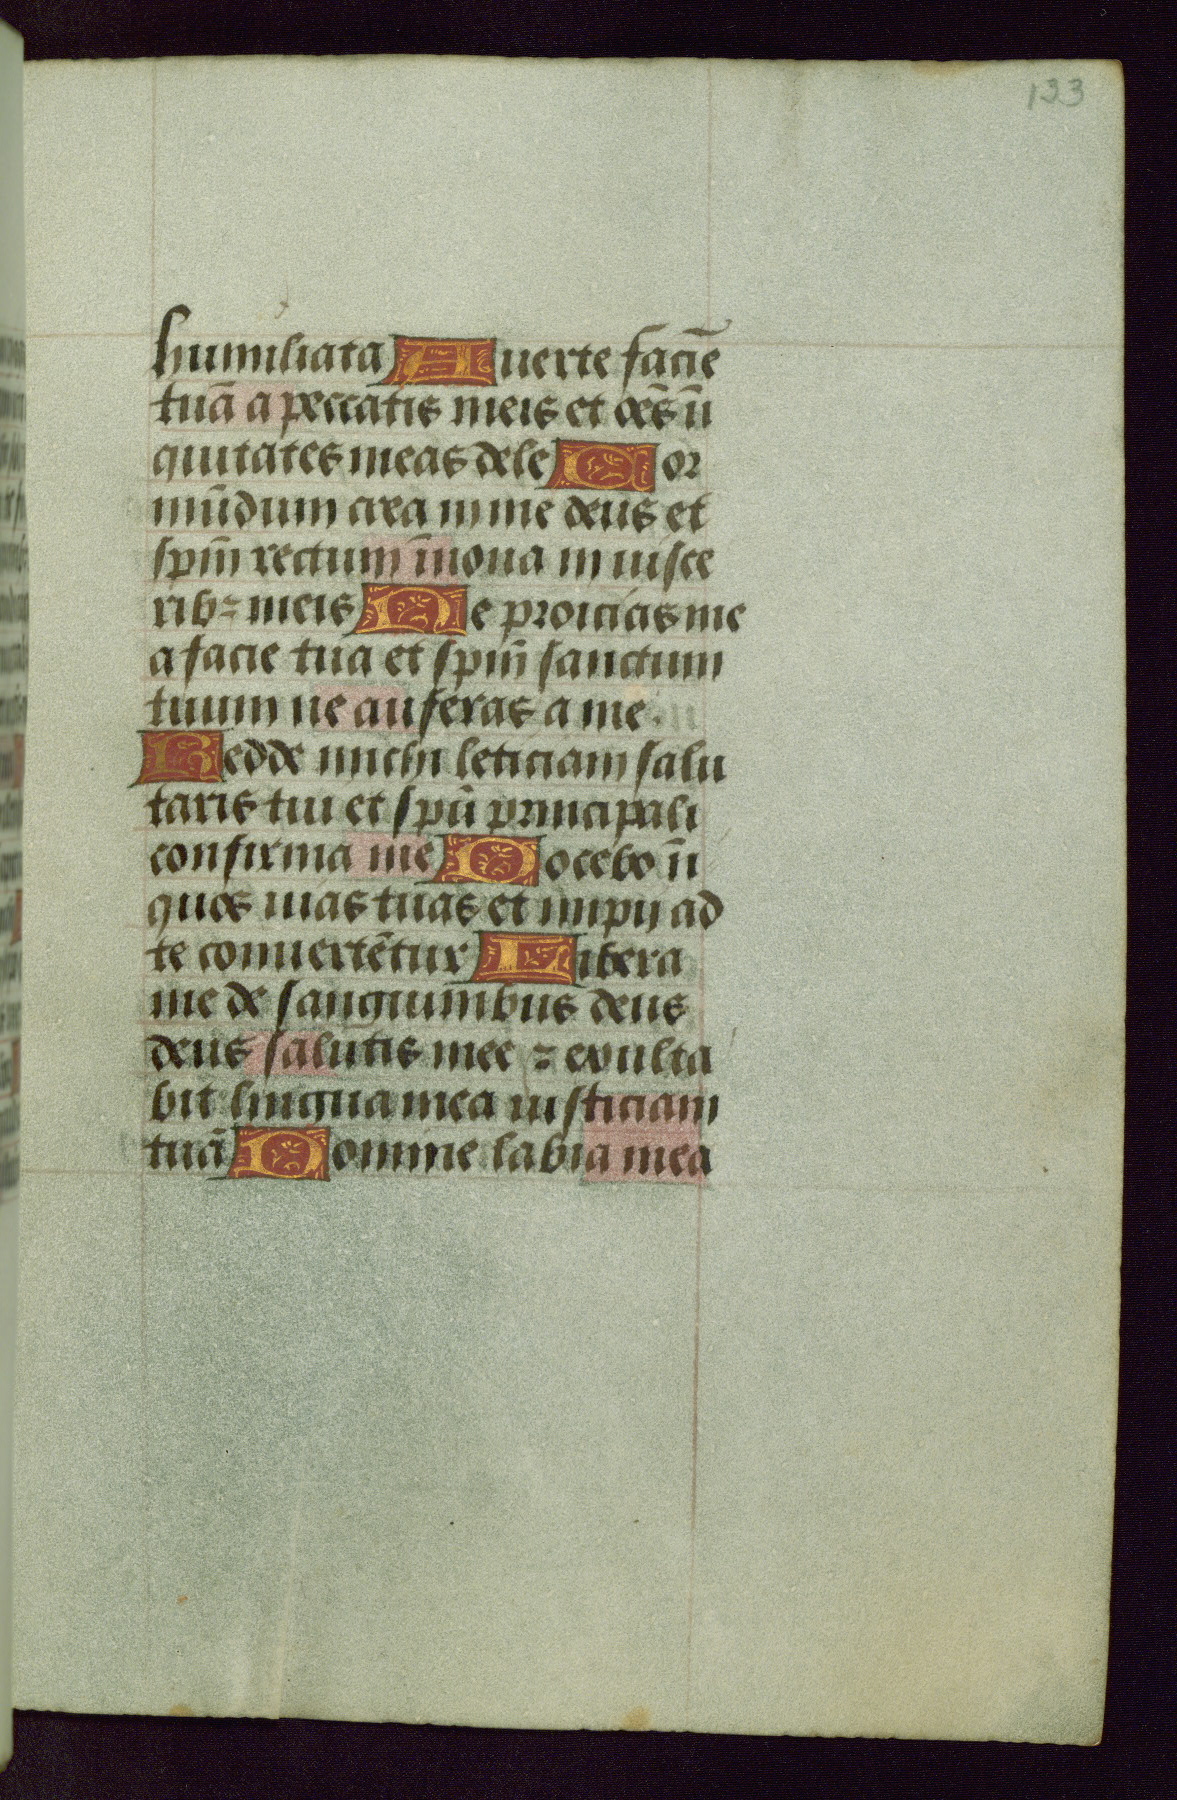 123
humiliata Auerte faciē
tuā a peccatis meis et oēs īi
quitates meas dele Cor
mūdum crea in me deus et
spm̄ rectum īnoua in uisce
ribꝫ meis Ne proicias me
a facie tua et spm̄ sanctum
tuum ne auferas a me
Redde michi leticiam salu
taris tui et spū principali
confirma me Docebo īi
quos uias tuas et impij ad
te conuertētur Libera
me de sanguinibus deus
deus salutis mee ⁊ exulta
bit lingua mea iusticiam
tuā Domine labia mea